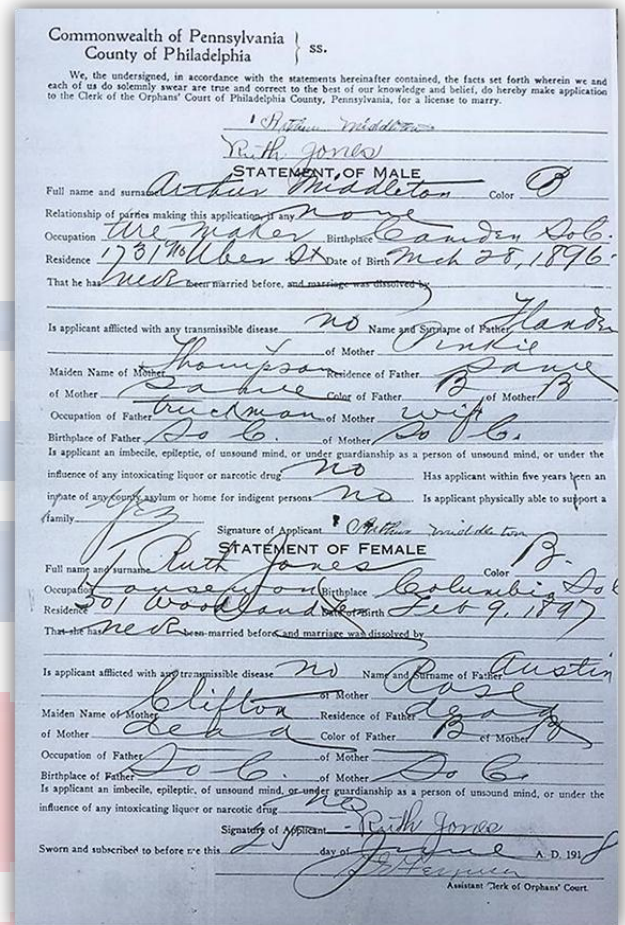 Commonwealth of Pennsylvania
County of Philadelphia } ss.
We, the undersigned, in accordance with the statements hereinafter contained, the facts set forth wherein we and
each of us do solemnly swear are true and correct to the best of our knowledge and belief, do hereby make application
to the Clerk of the Orphans' Court of Philadelphia County, Pennsylvania, for a license to marry.
Arthur Middleton
Ruth Jones
STATEMENT OF MALE
Full name and surname Arthur Middleton Color B
Relationship of parties making this application, if any none
Occupation tire maker Birthplace Camden So C.
Residence 1731 No Uber St Date of Birth Mch 28, 1896
That he has never been married before, and marriage was dissolved by
Is applicant afflicted with any transmissible disease no Name and Surname of Father
of Mother Pinkie
Maiden Name of Mother Thompson Residence of Father same
of Mother same Color of Father B of Mother B
Occupation of Father truckman of Mother wife
Birthplace of Father So C. of Mother So C.
Is applicant an imbecile, epileptic, of unsound mind, or under guardianship as a person of unsound mind, or under the
influence of any intoxicating liquor or narcotic drug no Has applicant within five years been an
inmate of any county asylum or home for indigent persons no Is applicant physically able to support a
family yes
Signature of Applicant Arthur Middleton
STATEMENT OF FEMALE
Full name and surname Ruth Jones Color B.
Occupation Birthplace Columbia So C
Residence 501 Woodland Date of Birth Feb 9, 1897
That she has never been married before, and marriage was dissolved by
Is applicant afflicted with any transmissible disease no Name and Surname of Father Austin
of Mother Rose
Maiden Name of Mother Clifton Residence of Father dead
of Mother dead Color of Father B of Mother B
Occupation of Father of Mother
Birthplace of Father So C. of Mother So C.
Is applicant an imbecile, epileptic, of unsound mind, or under guardianship as a person of unsound mind, or under the
influence of any intoxicating liquor or narcotic drug no
Signature of Applicant Ruth Jones
Sworn and subscribed to before me this 25 day of June A. D. 1918
Assistant Clerk of Orphans' Court.